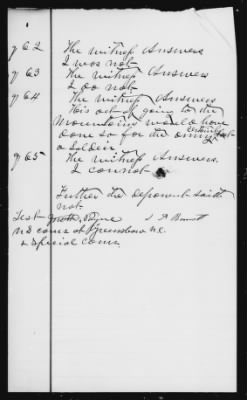 q 62 The witness Answers
I was not
q 63 The witness Answers
I do not
q 64 The witness Answers
His act of going to the
Mountains would have
done so for the
a Soldier
q 65 The witness Answers.
I cannot
Further the deponent saith
not
Test
N B Com at Greensboro N.C.
& Special Com